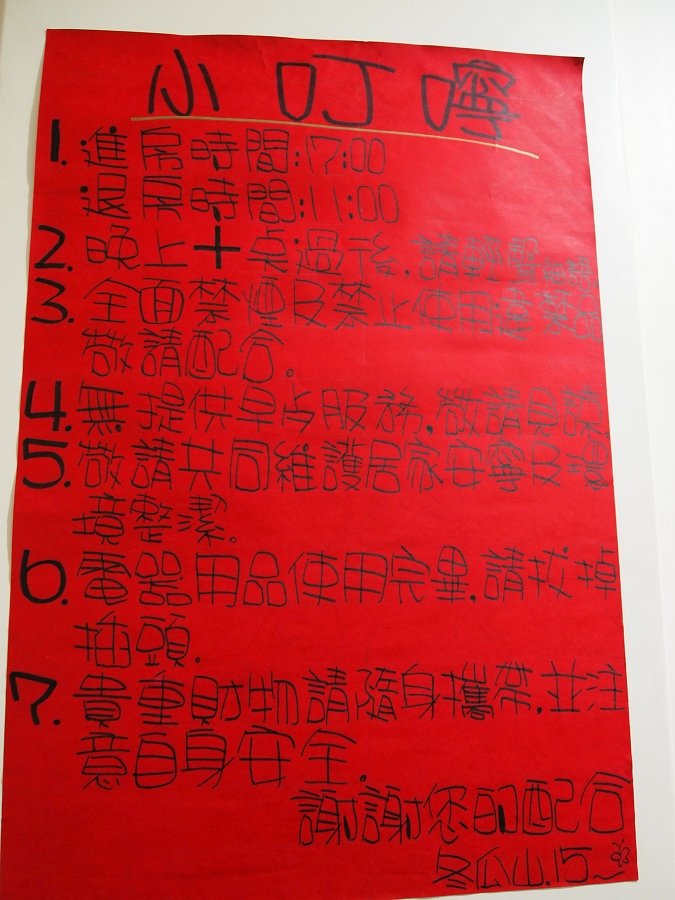 小叮嚀
1. 進房時間:17:00
退房時間:11:00
2. 晚上十点過後,請輕聲
3. 全面禁煙及禁止使用
敬請配合。
4. 無提供早点服務,敬請見諒.
5. 敬請共同維護居家安寧及環
境整潔。
6. 電器用品使用完畢,請拔掉
插頭.
7. 貴重財物請隨身攜帶,並注
意自身安全。
謝謝您的配合
冬瓜山.15~